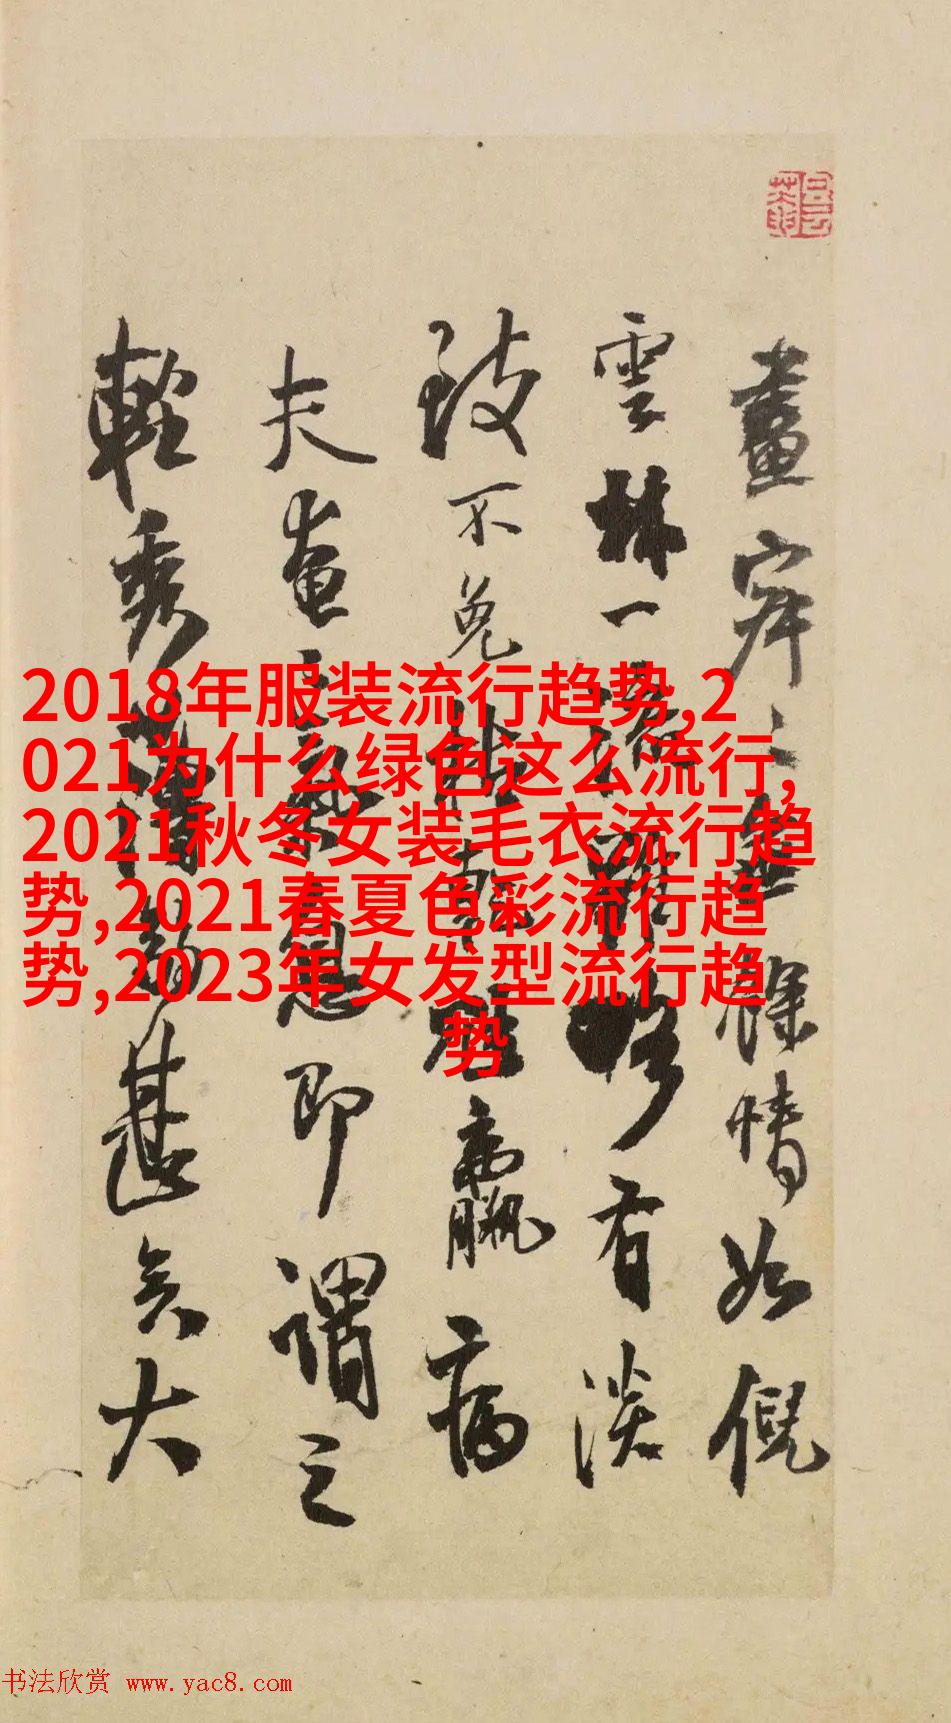 畫之無餘情如倪
雲林一有淡
致不免枯乾羸病
夫畫之氣息即謂之
輕秀薄弱甚矣大
2018年服装流行趋势,2
021为什么绿色这么流行,
2021秋冬女装毛衣流行趋
势,2021春夏色彩流行趋
势,2023年女发型流行趋
势
书法欣赏 www.yac8.com